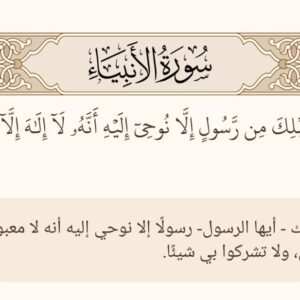 سُورَةُ الأَنبِيَاءِ
مِن رَّسُولٍ إِلَّا نُوحِىٓ إِلَيْهِ أَنَّهُۥ لَآ إِلَٰهَ إِلَّآ
- أيها الرسول- رسولًا إلا نوحي إليه أنه لا
، ولا تشركوا بي شيئًا.